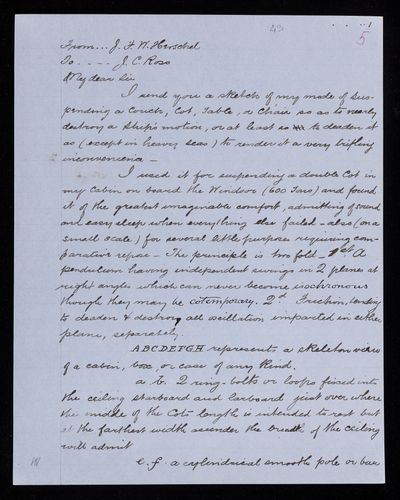 43
5
From... J. F. W. Herschel
To .... J. C. Ross
My dear Sir
I send you a sketch of my mode of sus-
pending a Couch, Cot, Table, or Chair so as to nearly
destroy a ship's motion, or at least so to deaden it
as (except in heavy seas) to render it a very trifling
inconvenience —
I used it for suspending a double Cot in
my Cabin on board the Windsor (600 Tons) and found
it of the greatest imaginable comfort, admitting of sound
and easy sleep when everything else failed - also (on a
small scale) for several little purposes requiring com-
parative repose - The principle is two fold - 1st A
pendulum having independent swings in 2 planes at
right angles which can never become isochronous
though they may be cotemporary. 2d Friction, tending
to deaden & destroy all oscillation imparted in either
plane, separately.
ABCDEFGH represents a skeleton view
of a cabin, box, or case of any kind.
a. b. 2 ring-bolts or loops fixed into
the ceiling starboard and larboard just over where
the middle of the Cots length is intended to rest but
at the farthest width asunder the breadth of the ceiling
will admit
e. f. a cylindrical smooth pole or bar